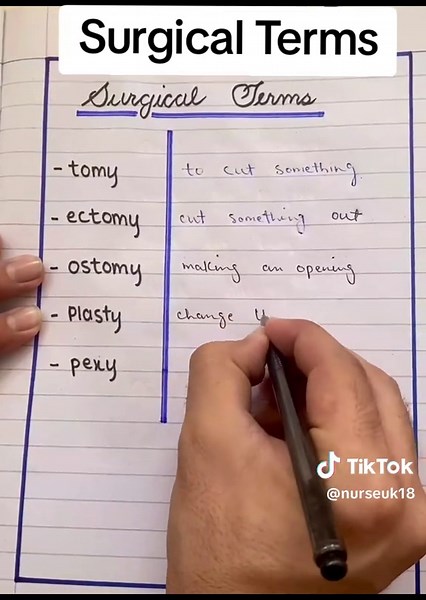 Surgical Terms
Surgical Terms
- tomy to cut something
- ectomy cut something out
- ostomy making an opening
- plasty change
- pexy
TikTok
@nurseuk18